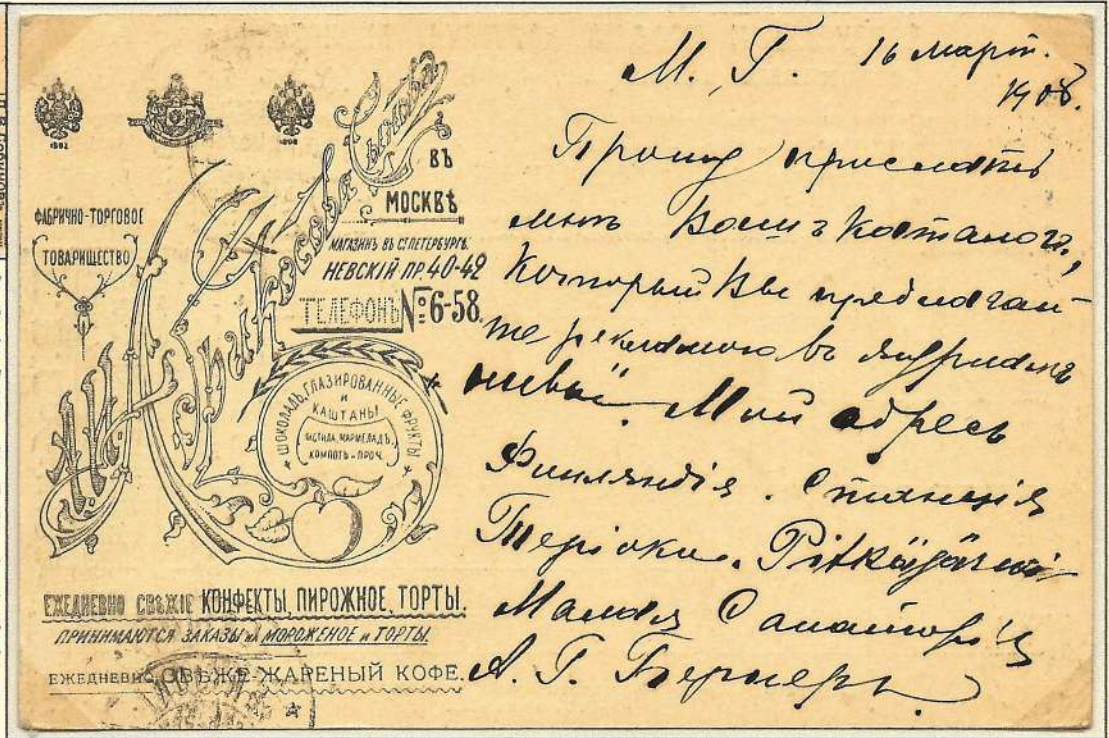 1882
1896
ФАБРИЧНО-ТОРГОВОЕ
ТОВАРИЩЕСТВО
А. И. Абрикосова Сыновей
ВЪ
МОСКВѢ
МАГАЗИНЪ ВЪ С.ПЕТЕРБУРГѢ.
НЕВСКІЙ ПР. 40-42
ТЕЛЕФОНЪ № 6-58.
ШОКОЛАДЪ, ГЛАЗИРОВАННЫЕ ФРУКТЫ
И
КАШТАНЫ
ПАСТИЛА, МАРМЕЛАДЪ,
КОМПОТЪ и ПРОЧ.
ЕЖЕДНЕВНО СВѢЖІЕ КОНФЕКТЫ, ПИРОЖНОЕ, ТОРТЫ.
ПРИНИМАЮТСЯ ЗАКАЗЫ НА МОРОЖЕНОЕ и ТОРТЫ.
ЕЖЕДНЕВНО СВѢЖЕ-ЖАРЕНЫЙ КОФЕ.
М. Г. 16 март.
1908.
Прошу прислать
мнѣ Вашъ каталогъ,
который Вы предлагае-
те
Мой адресъ
Финляндія. Станція
Теріоки. Pitkäjärvi
Малая Санаторія
А. Г. Бернеръ